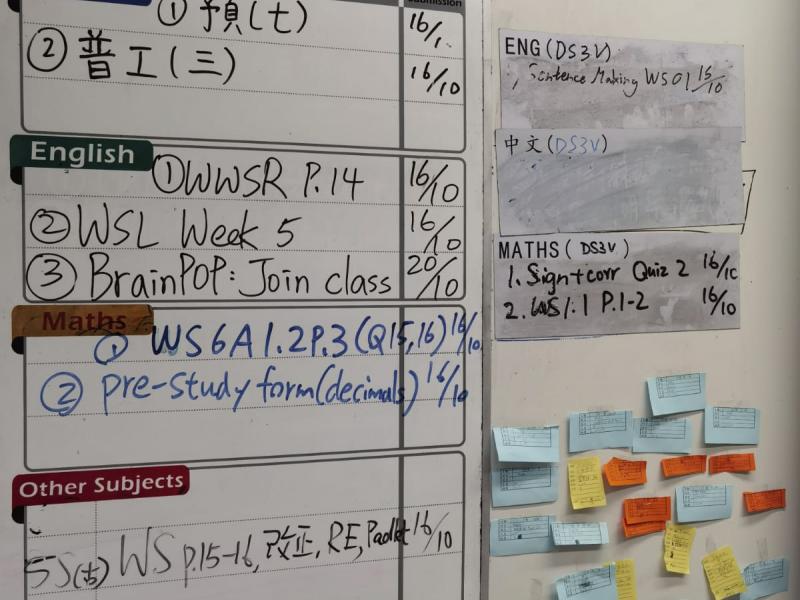 Submission
① 預(七) 16/1
② 普工(三) 16/10
English
① WWSR P.14 16/10
② WSL Week 5 16/10
③ BrainPOP: Join class 20/10
Maths
① WS 6A 1.2 P.3 (Q15,16) 16/10
② Pre-study form(decimals) 16/10
Other Subjects
WS p.15-16, 改正, RE, Padlet 16/10
ENG (DS3V)
Sentence Making WS 01 15/10
中文(DS3V)
MATHS (DS3V)
1. Sign+corr Quiz 2 16/10
2. WS 1.1 P.1-2 16/10